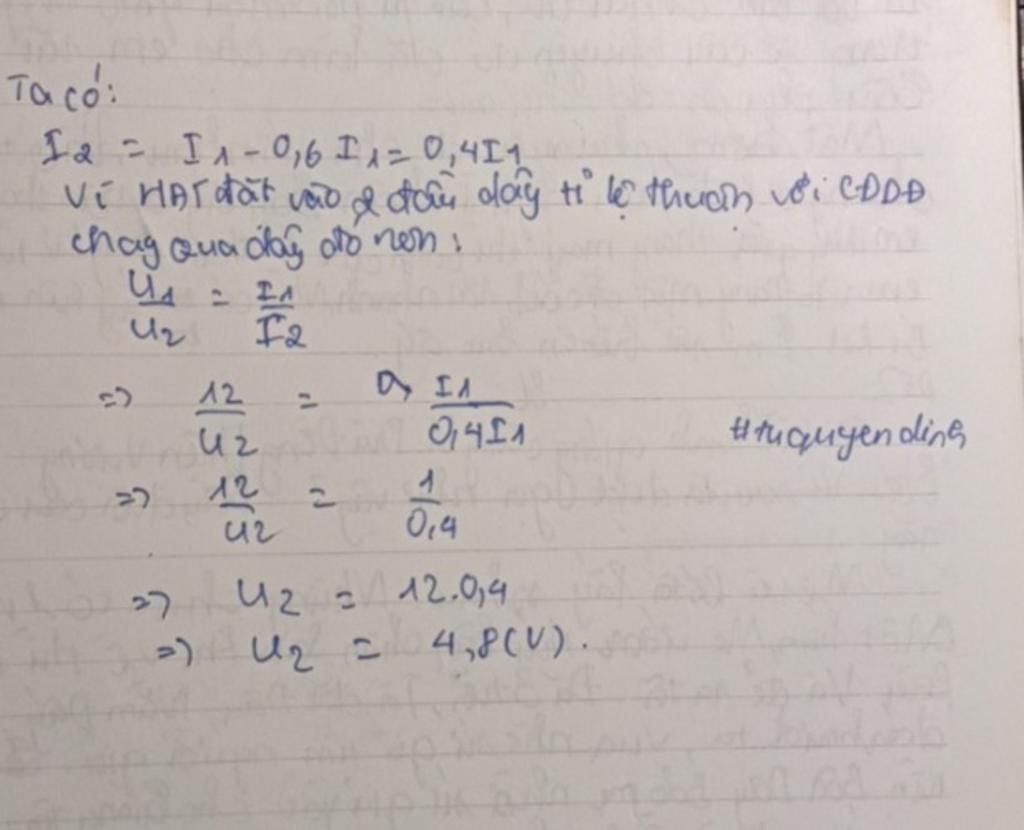 Ta có:
I2 = I1 - 0,6 I1 = 0,4I1
Vì HĐT đặt vào 2 đầu dây tỉ lệ thuận với CĐDĐ
chạy qua dây đó nên:
U1/U2 = I1/I2
=> 12/U2 = I1/0,4I1
#tuquyendinh
=> 12/U2 = 1/0,4
=> U2 = 12.0,4
=> U2 = 4,8(V).